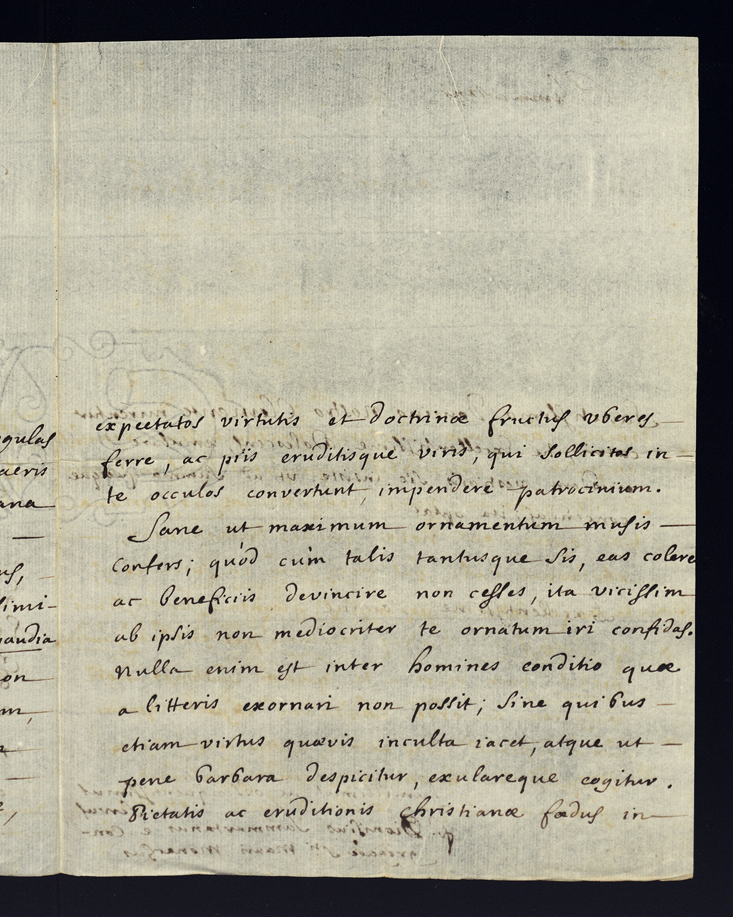 expectatos virtutis et doctrinæ fructus vberes
ferre, ac piis eruditisque viris, qui sollicitos in-
te occulos convertunt, impendere patrocinium.
Sane ut maximum ornamentum musis
confers; quòd cùm talis tantusque sis, eas colere
ac beneficiis devincire non cesses, ita vicissim
ab ipsis non mediocriter te ornatum iri confidas.
Nulla enim est inter homines conditio quæ
a litteris exornari non possit; sine quibus
etiam virtus quævis inculta iacet, atque ut
pene barbara despicitur, exulareque cogitur.
Pietatis ac eruditionis christianæ fœdus in
gulas
aeris
ana
us,
simi-
gaudia
on
m,